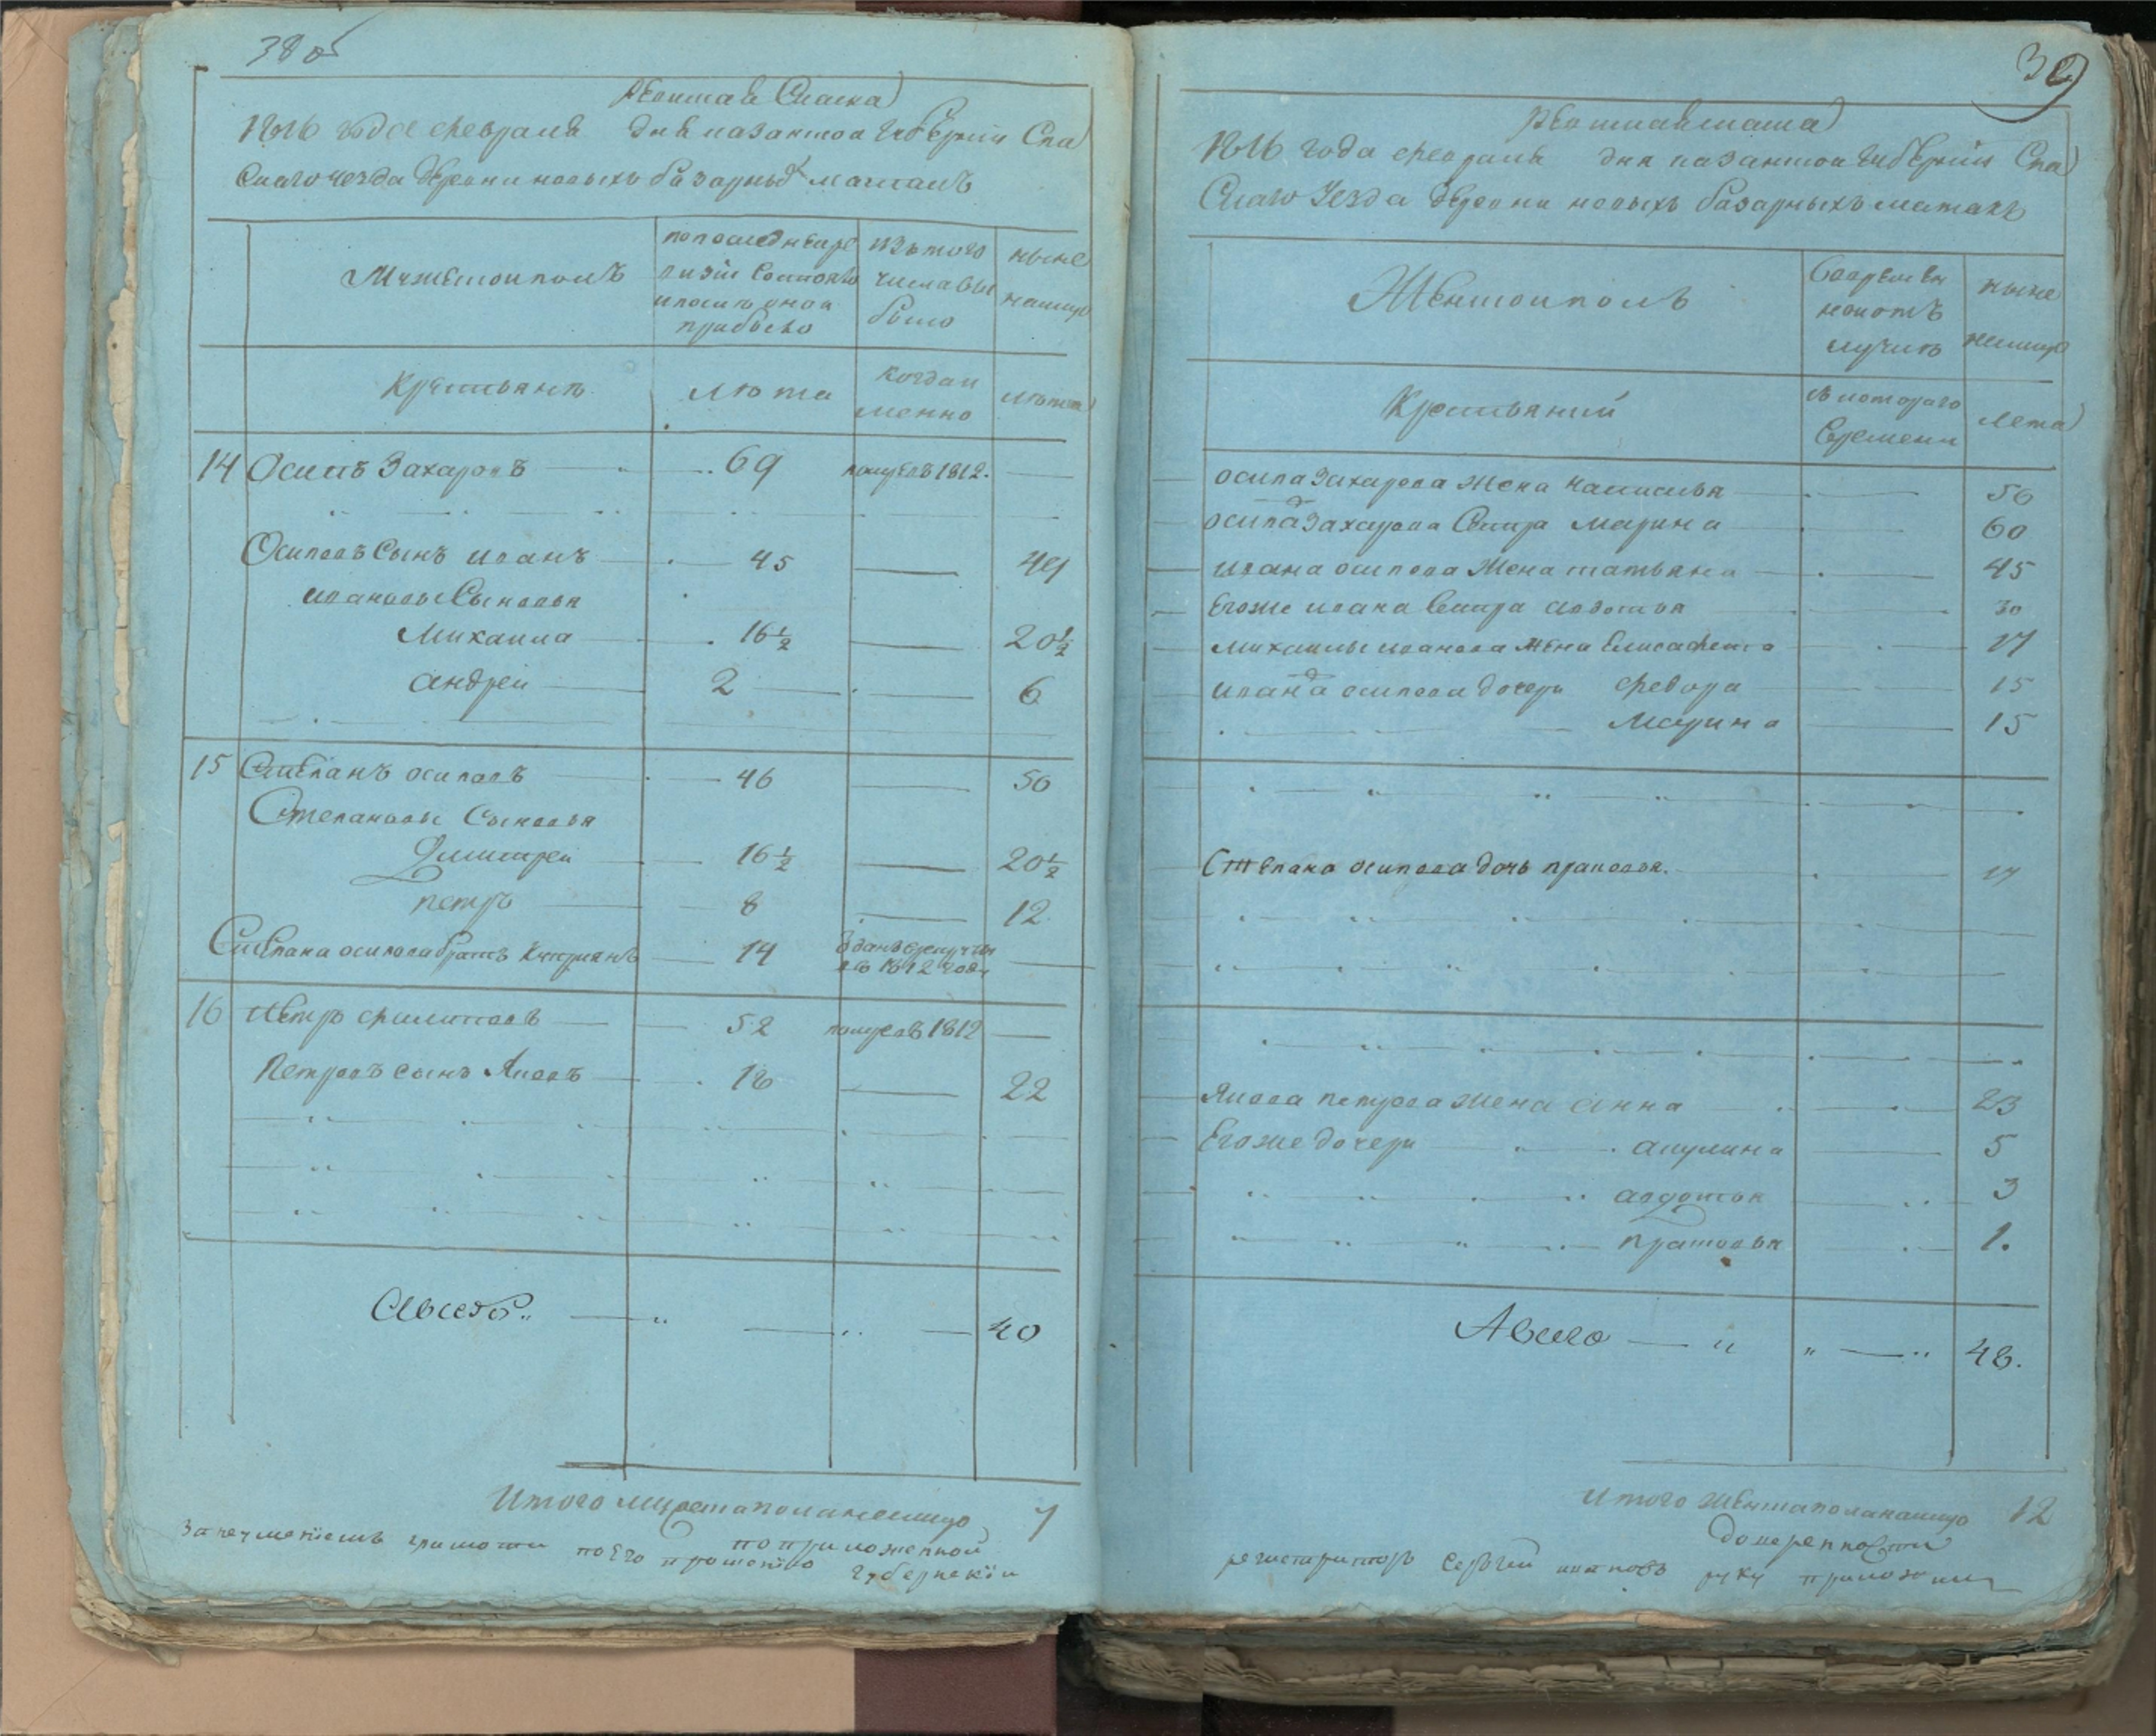 38 об
Ревижская Сказка
1816 года февраля дня казанской губернии Спа
Скаго уезда деревни новыхъ базарныхъ матакъ
Мужескои полъ
по последней ре
визіи Состояло
и после оной
прибыло
изъ того
числа вы
было
ныне
на лицо
Крестьяне
лета
когда и
менно
лета
14 Осипъ Захаровъ 69 померъ в 1812.
Осиповъ Сынъ иванъ 45 49
ивановы Сыновья
Михаила 16½ 20½
андрей 2 6
15 Степанъ осиповъ 46 50
Степановы Сыновья
Дмитрей 16½ 20½
петръ 8 12
Степана осипова братъ 14 отданъ в рекруты
въ 1812 году
16 Петръ филиповъ 52 померъ в 1812
Петровъ сынъ Яковъ 18 22
Авсего 40
Итого мужеска пола на лицо 7
За неумениемъ грамоте по его прошению по приложенной
губернский
39
1816 года февраля дня казанской губернии Спа
Скаго Уезда деревни новыхъ базарныхъ матакъ
Женскои полъ
Во времен
ной отъ
лучке
ныне
на лице
Крестьяний
Съ котораго
Времени
Лета
осипа Захарова жена 50
осипа Захарова Сестра марина 60
ивана осипова жена татьяна 45
Его же ивана Сестра авдотья 30
михаилы иванова жена Елисавета 17
ивана осипова дочери федора 15
Марина 15
Степана осипова дочь прасковья. 17
Якова петрова жена анна 23
Его же дочери акулина 5
авдотья 3
прасковья 1.
Авсего 48.
Итого женска пола на лицо 12
доверенности
регистраторъ Сергей руку приложилъ